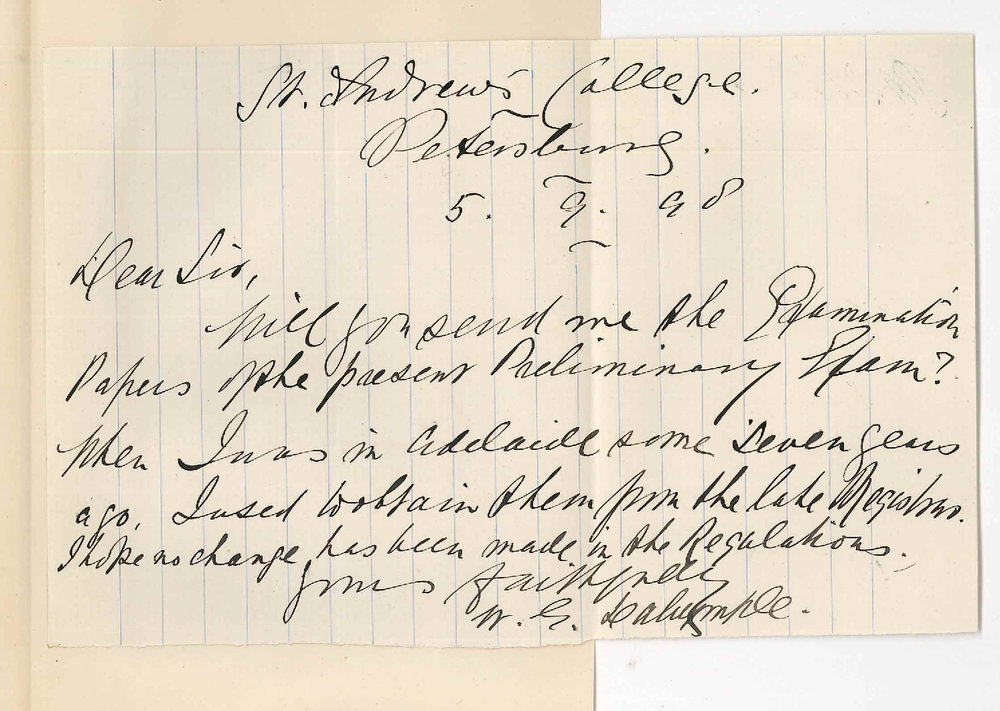 St. Andrew's College.
Petersburg.
5. 9. 98
Dear Sir,
Will you send me the Examination
Papers of the present Preliminary Exam?
When I was in Adelaide some seven years
ago, I used to obtain them from the late Registrar.
I hope no change has been made in the Regulations.
Yours faithfully
W. G. Dalrymple.